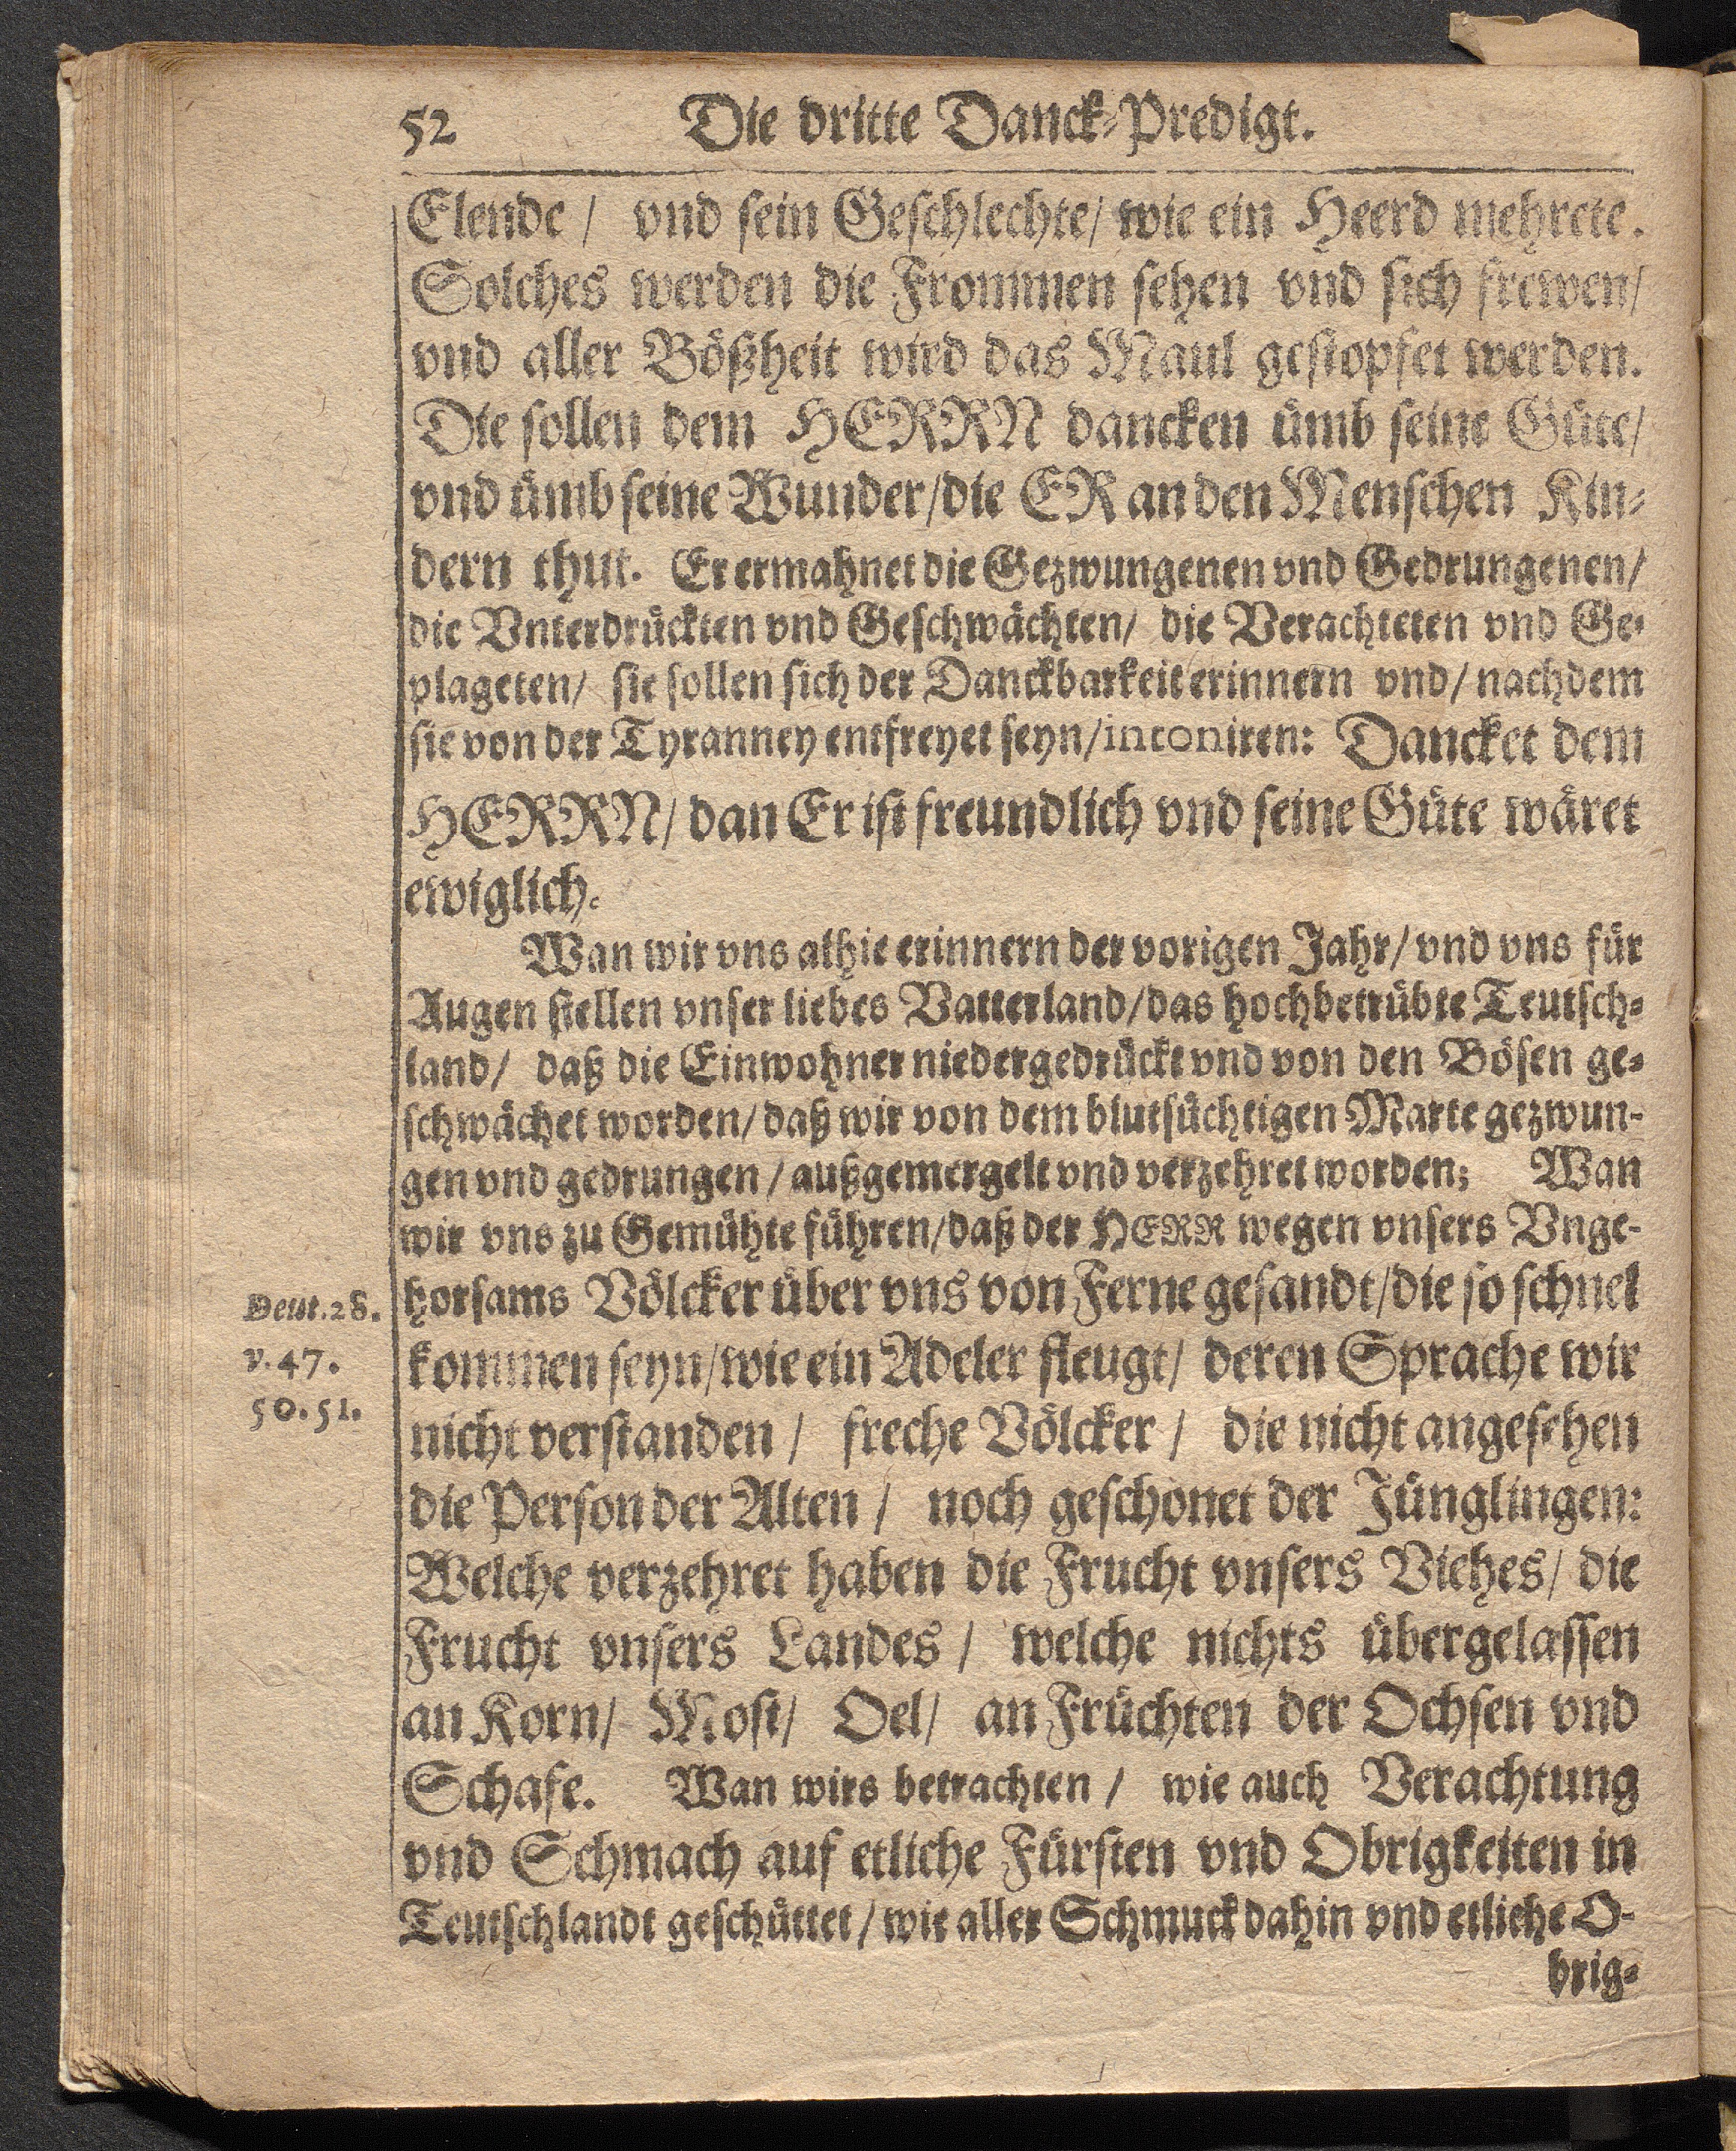 52 Die dritte Danck-Predigt.
Elende / vnd sein Geschlechte / wie ein Heerd mehrete.
Solches werden die Frommen sehen vnd sich frewen /
vnd aller Bößheit wird das Maul gestopfet werden.
Die sollen dem HERRN dancken ümb seine Güte /
vnd ümb seine Wunder / die ER an den Menschen Kin-
dern thut. Er ermahnet die Gezwungenen vnd Gedrungenen /
die Vnterdrückten vnd Geschwächten / die Verachteten vnd Ge-
plageten / sie sollen sich der Danckbarkeit erinnern vnd / nachdem
sie von der Tyranney entfreyet seyn / intoniren: Dancket dem
HERRN / dan Er ist freundlich vnd seine Güte wäret
ewiglich.
Wan wir vns alhie erinnern der vorigen Jahr / vnd vns für
Augen stellen vnser liebes Vatterland / das hochbetrübte Teutsch-
land / daß die Einwohner niedergedrückt vnd von den Bösen ge-
schwächet worden / daß wir von dem blutsüchtigen Marte gezwun-
gen vnd gedrungen / außgemergelt vnd verzehret worden; Wan
wir vns zu Gemühte führen / daß der HERR wegen vnsers Vnge-
horsams Völcker über vns von Ferne gesandt / die so schnel
kommen seyn / wie ein Adeler fleugt / deren Sprache wir
nicht verstanden / freche Völcker / die nicht angesehen
die Person der Alten / noch geschonet der Jünglingen:
Welche verzehret haben die Frucht vnsers Viehes / die
Frucht vnsers Landes / welche nichts übergelassen
an Korn / Most / Oel / an Früchten der Ochsen vnd
Schafe. Wan wirs betrachten / wie auch Verachtung
vnd Schmach auf etliche Fürsten vnd Obrigkeiten in
Teutschlandt geschüttet / wie aller Schmuck dahin vnd etliche O-
brig-
Deut. 28.
v. 47.
50. 51.